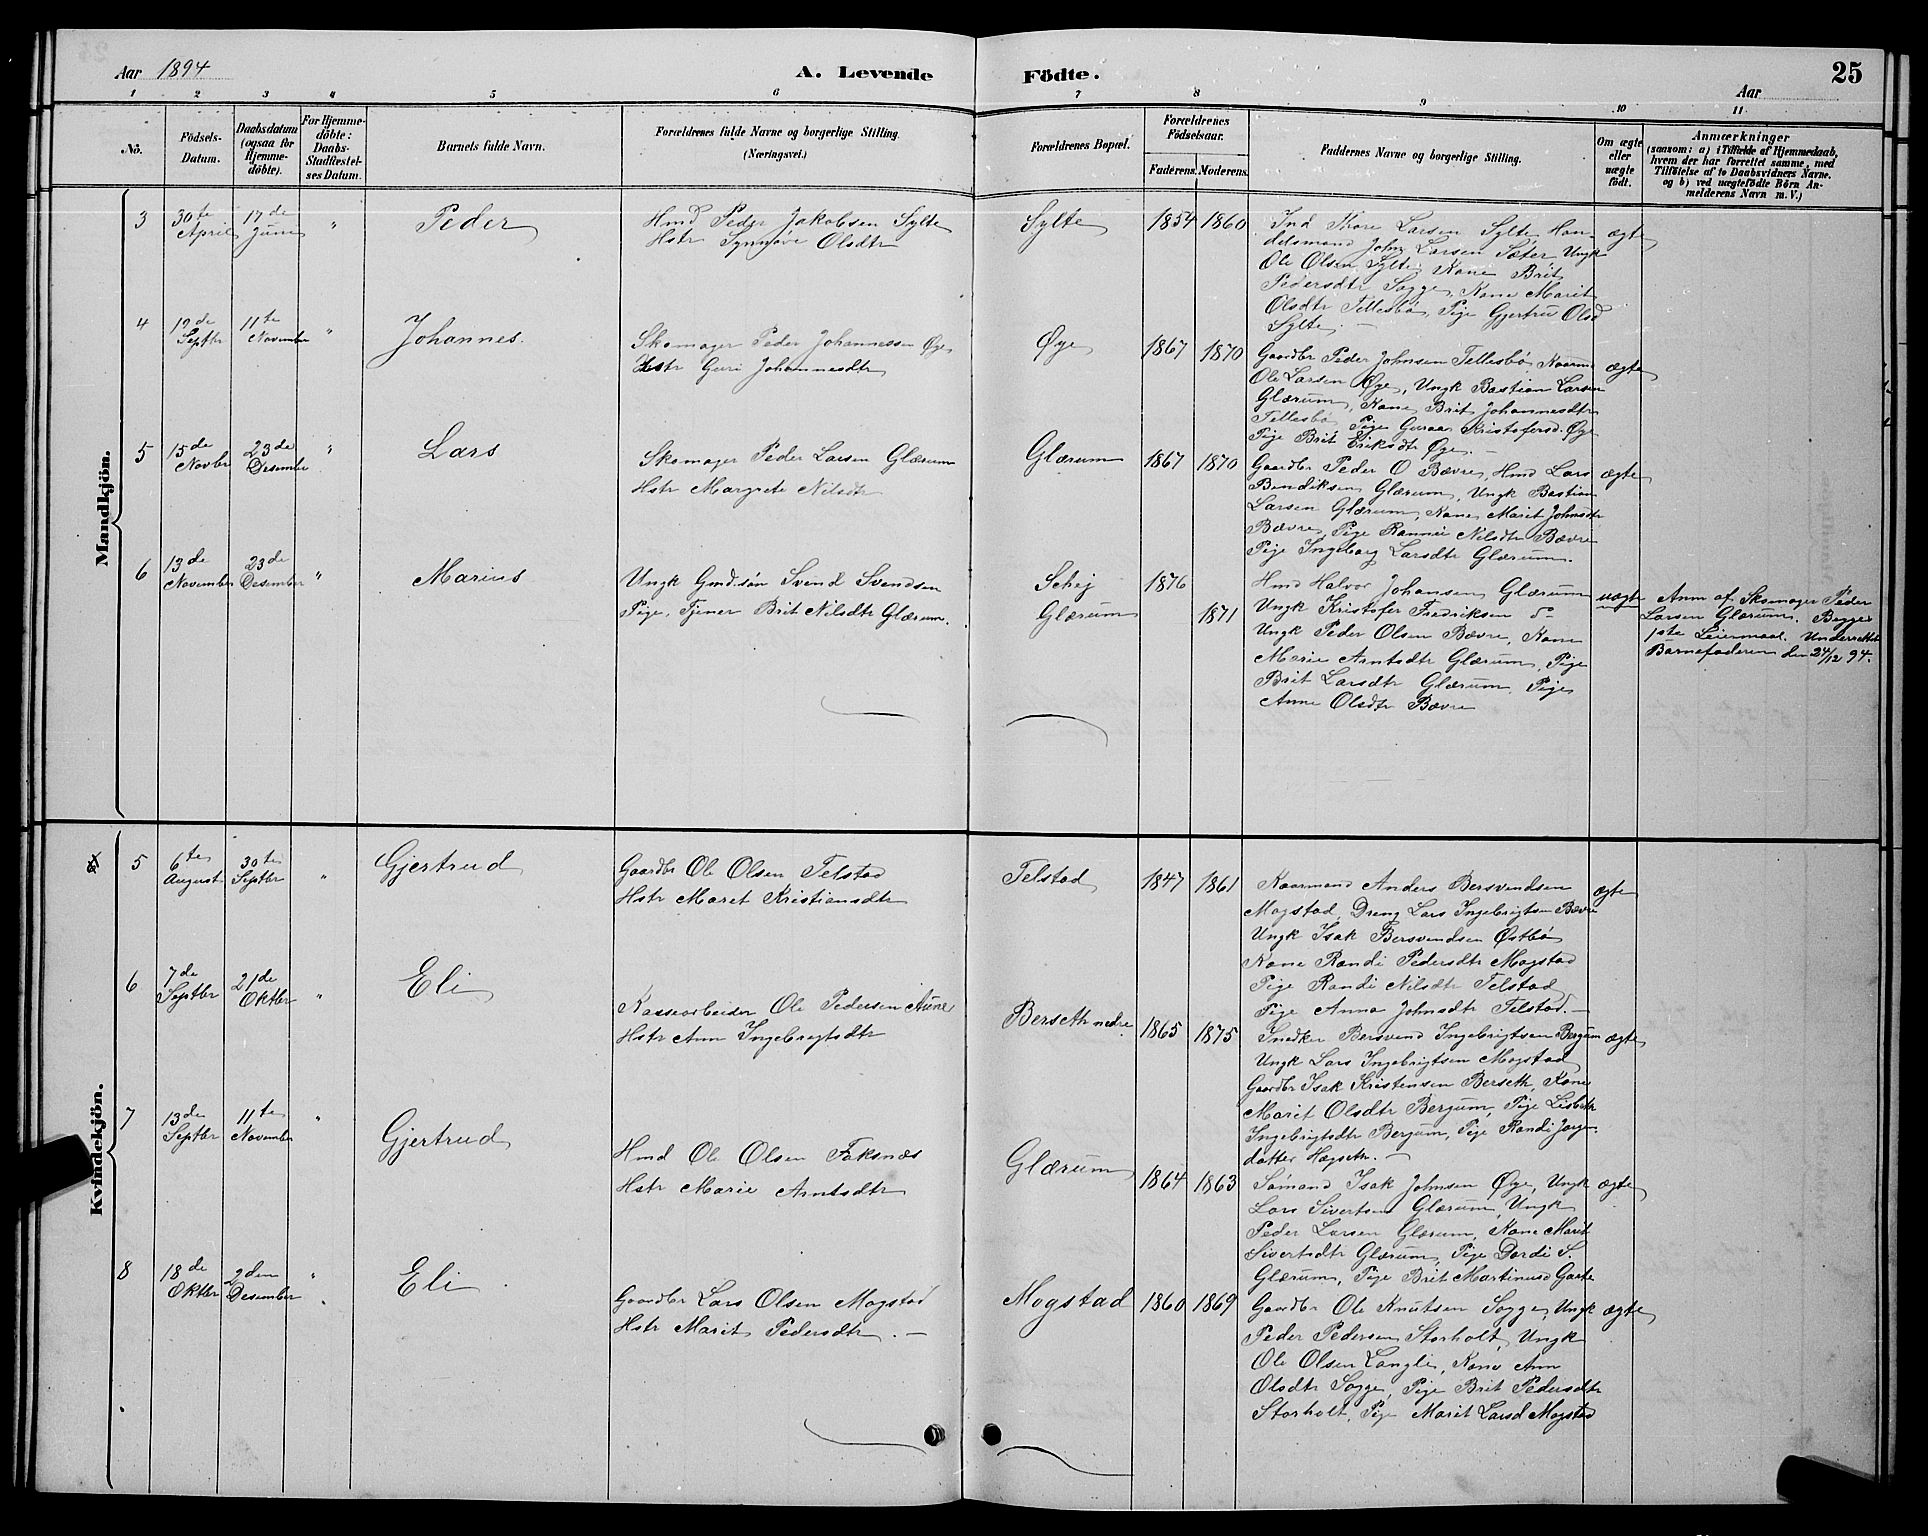 Aar 1894
A. Levende Födte.
25
Aar
1 2 3 4 5 6 7 8 9 10 11
No.
Födsels-Datum.
Daabsdatum (ogsaa for Hjemme-döbte).
For Hjemme-döbte: Daabs-Stadfæstel-ses Datum.
Barnets fulde Navn.
Forældrenes fulde Navne og borgerlige Stilling.
(Næringsvei.)
Forældrenes Bopæl.
Forældrenes Födselsaar.
Faderens. Moderens.
Faddernes Navne og borgerlige Stilling.
Om ægte eller uægte födt.
Anmærkninger
(saasom: a) i Tilfælde af Hjemmedaab,
hvem der har forrettet samme, med
Tilföielse af to Daabsvidners Navne.
og b) ved uægtefödte Börn An-
melderens Navn m. V.)
Mandkjön.
3 30te April 17de Juni " Peder
Hmd Peder Jakobsen Sylte
Hstr Synnøve Olsdtr
Sylte 1854 1860
Ind Thore Larsen Sylte Han-
delsmand John Larsen Sæter, Ungk
Ole Olsen Sylte, Kone Brit
Pedersdtr Sogge, Kone Marit
Olsdtr Tellesbø, Pige Gjertru Olsd
Sylte. —
ægte
4 19de Septbr 11te November " Johannes.
Skomager Peder Johannessen Øye
Hstr Guri Johannesdtr
Øye 1867 1870
Gaardbr Peder Johnsen Tellesbø, Kaarm
Ole Larsen Øye, Ungk Bastian Larsen
Glærum, Kone Brit Johannesdtr
Tellesbø, Pige Guraa Kristofersd. Øye
Pige Brit Eriksdtr Øye. —
ægte
5 15de Novbr 23de Desember " Lars
Skomager Peder Larsen Glærum
Hstr Margrete Nilsdtr
Glærum 1867 1870
Gaardbr Peder O Bævre, Hmd Lars
Bendiksen Glærum, Ungk Bastian
Larsen Glærum, Kone Marit Johnsdtr
Bævre, Pige Rannei Nilsdtr Bævre
Pige Ingeborg Larsdtr Glærum.
ægte
6 13de November 23de Desember " Marius
Ungk Gmd.søn Svend Svendsen
Pige, Tjener Brit Nilsdtr Glærum.
Schej 1876
Glærum 1871
Hmd Halvor Johansen Glærum
Ungk Kristofer Fredriksen
Ungk Peder Olsen Bævre, Kone
Marie Arntsdtr Glærum, Pige
Brit Larsdtr Glærum, Pige
Anne Olsdtr Bævre
uægte
Anm af Skomager Peder
Larsen Glærum. Begges
1ste Leiermaal. Underrettet
Barnefaderen den 24/12 94.
Kvindekjön.
5 6te August 30te Septbr " Gjertrud
Gaardbr Ole Olsen Telstad
Hstr Maret Kristiansdtr
Telstad 1847 1861
Kaarmand Anders Bersvendsen
Mogstad, Dreng Lars Ingebrigtsen Bævre
Ungk Isak Bersvendsen Østbø
Kone Randi Pedersdtr Mogstad
Pige Randi Nilsdtr Telstad
Pige Anna Johnsdtr Telstad. —
ægte
6 7de Septbr 21de Oktbr " Eli
Ole Pedersen Aune
Hstr Ann Ingebrigtsdtr
Berseth nedre 1865 1875
Snedker Bersvend Ingebrigtsen Bergum
Ungk Lars Ingebrigtsen Mogstad
Gaardbr Isak Kristensen Berseth, Kone
Marit Olsdtr Bergum, Pige Lisbeth
Ingebrigtsdtr Bergum, Pige Randi Jørgen-
datter Hægseth. —
ægte
7 13de Septbr 11te November " Gjertrud
Hmd Ole Olsen Faksnæs
Hstr Marie Arntsdtr
Glærum 1864 1863
Sømand Isak Johnsen Øye, Ungk
Lars Sivertsen Glærum, Ungk
Peder Larsen Glærum, Kone Marit
Sivertsdtr Glærum, Pige Dordi S.
Glærum, Pige Brit Martinusd Gaate
ægte
8 18de Oktbr 2den Desember " Eli
Gaardbr Lars Olsen Mogstad
Hstr Marit Pedersdtr. —
Mogstad 1860 1869
Gaardbr Ole Knutsen Sogge, Ungk
Peder Pedersen Storholt, Ungk
Ole Olsen Langli, Kone Ann
Olsdtr Sogge, Pige Brit Pedersdtr
Storholt, Pige Marit Larsd Mogstad
ægte